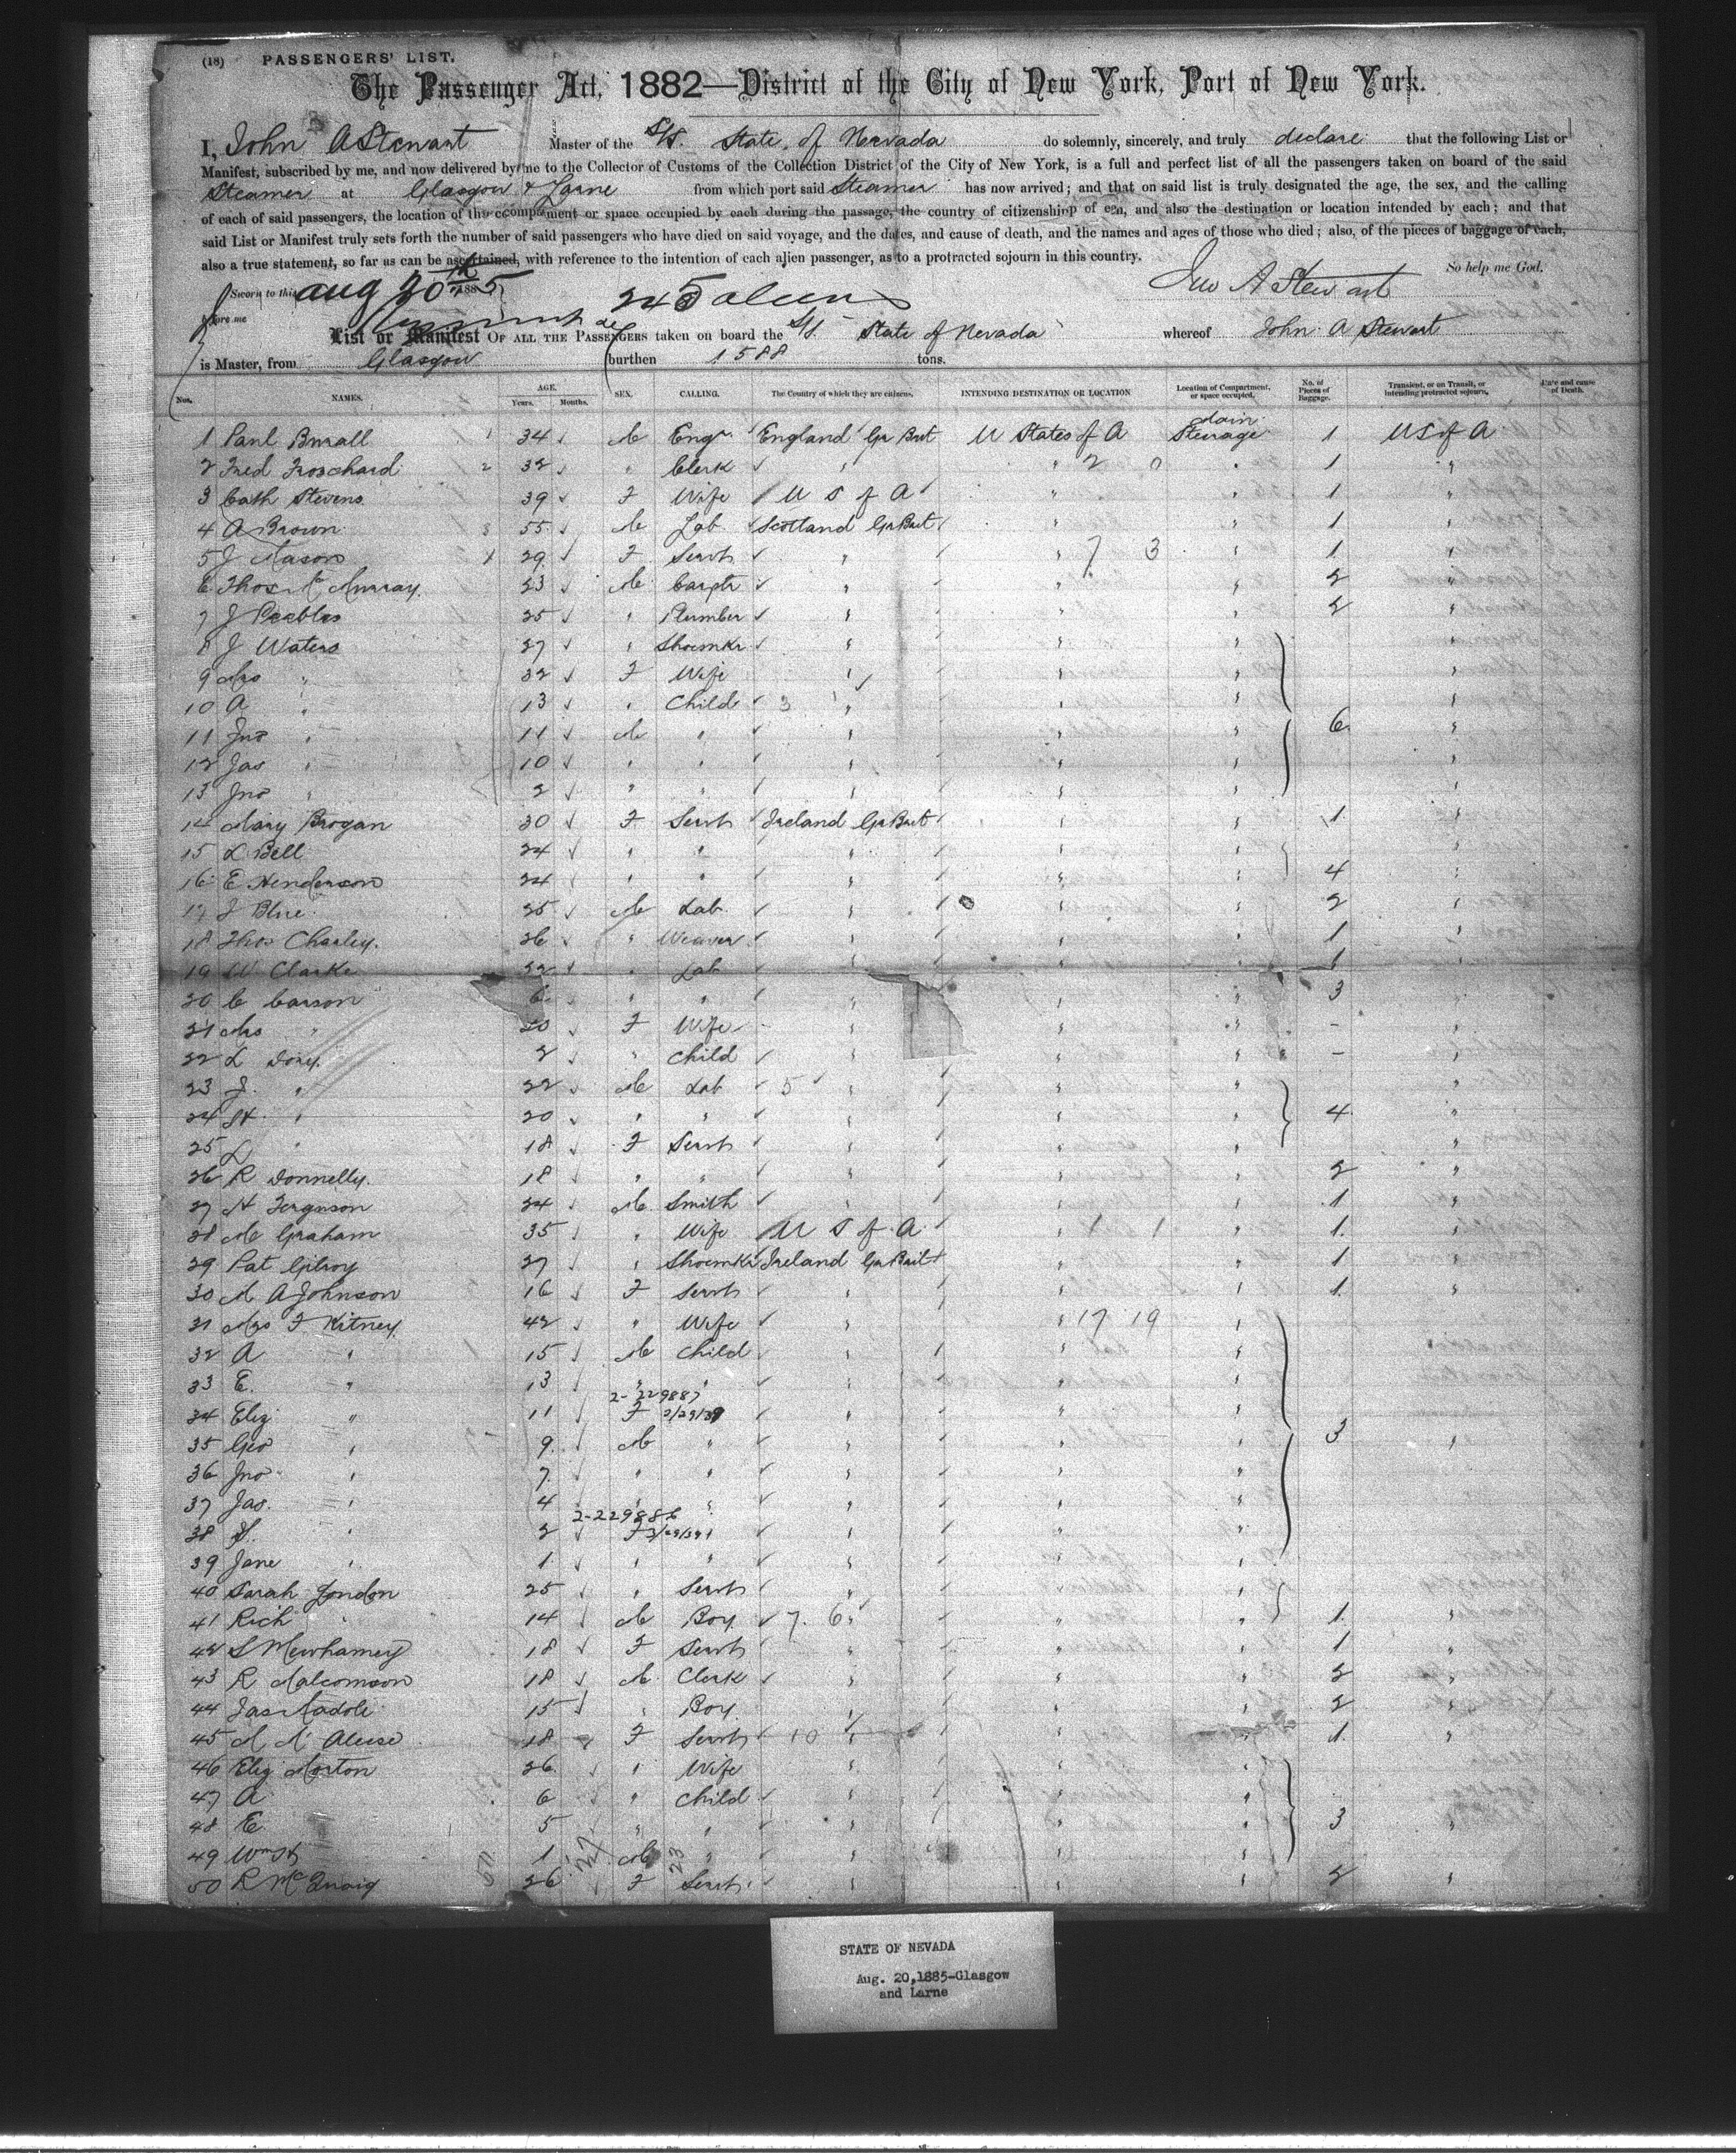 (18) PASSENGERS' LIST.
The Passenger Act, 1882—District of the City of New York, Port of New York.
I, John A Stewart Master of the S/S. State of Nevada do solemnly, sincerely, and truly declare that the following List or
Manifest, subscribed by me, and now delivered by me to the Collector of Customs of the Collection District of the City of New York, is a full and perfect list of all the passengers taken on board of the said
Steamer at Glasgow & Larne from which port said Steamer has now arrived; and that on said list is truly designated the age, the sex, and the calling
of each of said passengers, the location of the compartment or space occupied by each during the passage, the country of citizenship of each, and also the destination or location intended by each; and that
said List or Manifest truly sets forth the number of said passengers who have died on said voyage, and the dates, and cause of death, and the names and ages of those who died; also, of the pieces of baggage of each,
also a true statement, so far as can be ascertained, with reference to the intention of each alien passenger, as to a protracted sojourn in this country.
So help me God.
Sworn to this Aug 20th 1885 245 aliens Jno A Stewart
before me
List or Manifest OF ALL THE PASSENGERS taken on board the S/S State of Nevada whereof John A Stewart
is Master, from Glasgow burthen 1588 tons.
Nos. NAMES. AGE. Years. Months. SEX. CALLING. The Country of which they are citizens. INTENDING DESTINATION OR LOCATION Location of Compartment, or space occupied. No. of Pieces of Baggage. Transient, or on Transit, or intending protracted sojourn. Date and cause of Death.
1 Paul Burall 1 34 M Engr England Gr Brit U States of A Steerage 1 U S of A
2 Fred 2 32 " Clerk " " 2 0 " 1 "
3 Cath Stevens 39 F Wife U S of A " " 1 "
4 A Brown 3 55 M Lab Scotland Gr Brit " " 1 "
5 J Mason 29 F Servt " " 7 3 " 1 "
6 Thos McMurray 23 M Carptr " " " 2 "
7 J Peebles 25 " Plumber " " " 2 "
8 J Waters 37 " Shoemkr " " " "
9 Mrs " 32 F Wife " " " "
10 A " 13 " Child 3 " " " "
11 Jno " 11 M " " " " 6 "
12 Jas " 10 " " " " " "
13 Jno " 2 " " " " " "
14 Mary Brogan 30 F Servt Ireland Gr Brit " " 1 "
15 L Bell 24 " " " " " "
16 E Henderson 24 " " " " " 4 "
17 J Blue 25 M Lab " " " 2 "
18 Thos Charley 26 " Weaver " " " 1 "
19 W Clarke 22 " Lab " " " 1 "
20 C Carson " " " " " 3 "
21 Mrs " 20 F Wife " " " - "
22 L 2 " Child " " " - "
23 J. " 22 M Lab 5 " " " "
24 " 20 " " " " " 4 "
25 L " 18 F Servt " " " "
26 R Donnelly 18 " " " " " 2 "
27 H Ferguson 24 M Smith " " " 1 "
28 M Graham 35 " Wife U S of A " 1 1 " 1 "
29 Pat Gilroy 27 " Shoemkr Ireland Gr Brit " " 1 "
30 M A Johnson 16 F Servt " " " 1
31 Mrs F Kitney 42 " Wife " " 17 19 "
32 A " 15 M Child " " "
33 E. " 13 " " " " "
2-229887
34 Eliz " 11 F 3/29/39 " " "
35 Geo " 9 M " " " " 3 "
36 Jno " 7 " " " " "
37 Jas. " 4 " " " " "
2-229886
38 S. " 2 F 3/29/39 " " "
39 Jane " 1 " " " " "
40 Sarah London 25 " Servt " " "
41 Rich " 14 M Boy 7. 6 " " " 1 "
42 S 18 F Servt " " " 1 "
43 R Malcomson 18 M Clerk " " " 2 "
44 Jas 15 " Boy " " " 2 "
45 M 18 F Servt 10 " " " 1 "
46 Eliz Morton 26 " Wife " " "
47 A " 6 " Child " " "
48 E 5 " " " " " 3 "
49 1 M " " " "
50 R 26 F Servt " " " 2 "
STATE OF NEVADA
Aug. 20,1885-Glasgow
and Larne